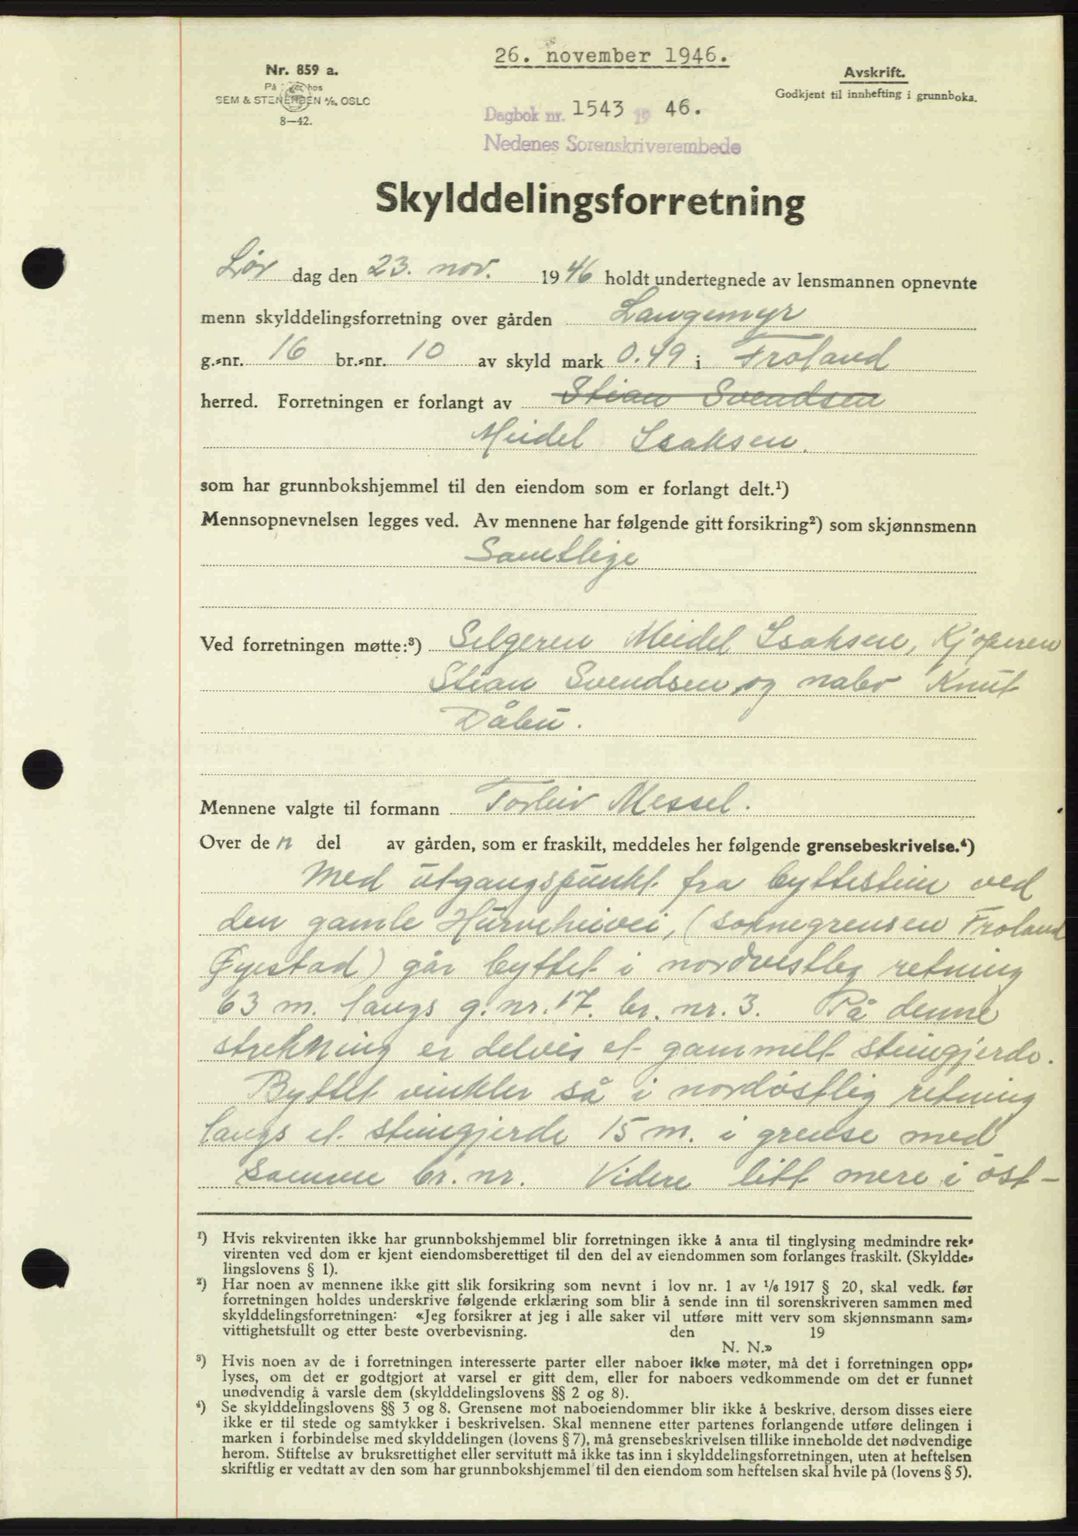 26. november 1946.
Nr. 859 a.
På lager hos
SEM & STENERSEN A/S, OSLO
8—42.
Avskrift.
Godkjent til innhefting i grunnboka.
Dagbok nr. 1543 19 46.
Nedenes Sorenskriverembede
Skylddelingsforretning
Lør dag den 23. nov. 1946 holdt undertegnede av lensmannen opnevnte
menn skylddelingsforretning over gården Langemyr
g.-nr. 16 br.-nr. 10 av skyld mark 0.49 i Froland
herred. Forretningen er forlangt av Stian Svendsen
Meidel Isaksen.
som har grunnbokshjemmel til den eiendom som er forlangt delt.¹)
Mennsopnevnelsen legges ved. Av mennene har følgende gitt forsikring²) som skjønnsmenn
Samtlige
Ved forretningen møtte:³) Selgeren Meidel Isaksen, Kjøperen
Stian Svendsen og nabo Knut
Dåbu.
Mennene valgte til formann Torleiv Messel.
Over den del av gården, som er fraskilt, meddeles her følgende grensebeskrivelse.⁴)
Med utgangspunkt fra byttestein ved
den gamle Hurveheivei, (sognegrensen Froland
Øyestad) går byttet i nordvestleg retning
63 m. langs g. nr. 17. br. nr. 3. På denne
strekning er delvis et gammelt steingjerde.
Byttet vinkler så i nordöstlig retning
langs et steingjerde 15 m. i grense med
samme br. nr. Videre litt mere i öst-
¹) Hvis rekvirenten ikke har grunnbokshjemmel blir forretningen ikke å anta til tinglysing medmindre rek-
virenten ved dom er kjent eiendomsberettiget til den del av eiendommen som forlanges fraskilt. (Skyldde-
lingslovens § 1).
²) Har noen av mennene ikke gitt slik forsikring som nevnt i lov nr. 1 av 1/6 1917 § 20, skal vedk. før
forretningen holdes underskrive følgende erklæring som blir å sende inn til sorenskriveren sammen med
skylddelingsforretningen: «Jeg forsikrer at jeg i alle saker vil utføre mitt verv som skjønnsmann sam-
vittighetsfullt og etter beste overbevisning. den 19
N. N.»
³) Hvis noen av de i forretningen interesserte parter eller naboer ikke møter, må det i forretningen opp-
lyses, om det er godtgjort at varsel er gitt dem, eller for naboers vedkommende om det er funnet
unødvendig å varsle dem (skylddelingslovens §§ 2 og 8).
⁴) Se skylddelingslovens §§ 3 og 8. Grensene mot naboeiendommer blir ikke å beskrive, dersom disses eiere
ikke er til stede og samtykker i beskrivelsen. Skal mennene etter partenes forlangende utføre delingen i
marken i forbindelse med skylddelingen (lovens § 7), må grensebeskrivelsen tillike inneholde det nødvendige
herom. Stiftelse av bruksrettighet eller servitutt må ikke tas inn i skylddelingsforretningen, uten at heftelsen
skriftlig er vedtatt av den som har grunnbokshjemmel til den eiendom som heftelsen skal hvile på (lovens § 5).